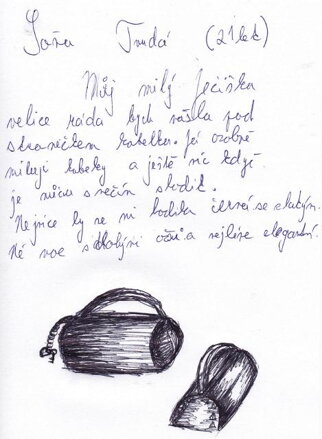 Soňa Tvrdá (21 let)
Můj milý Ježíšku
velice ráda bych našla pod
stromečkem kabelku. Já osobně
miluji kabelky a ještě víc když
je můžu s něčím sladit.
Nejvíce by se mi hodila černá se zlatým.
Né moc s a nejlépe elegantní.